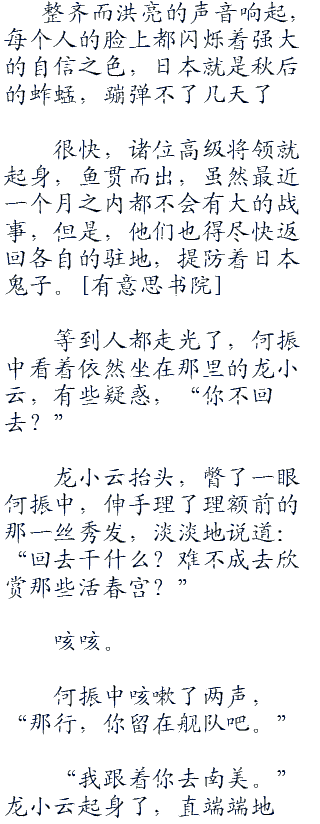 整齐而洪亮的声音响起，
每个人的脸上都闪烁着强大
的自信之色，日本就是秋后
的蚱蜢，蹦弹不了几天了
很快，诸位高级将领就
起身，鱼贯而出，虽然最近
一个月之内都不会有大的战
事，但是，他们也得尽快返
回各自的驻地，提防着日本
鬼子。[有意思书院]
等到人都走光了，何振
中看着依然坐在那里的龙小
云，有些疑惑，“你不回
去？”
龙小云抬头，瞥了一眼
何振中，伸手理了理额前的
那一丝秀发，淡淡地说道：
“回去干什么？难不成去欣
赏那些活春宫？”
咳咳。
何振中咳嗽了两声，
“那行，你留在舰队吧。”
“我跟着你去南美。”
龙小云起身了，直端端地